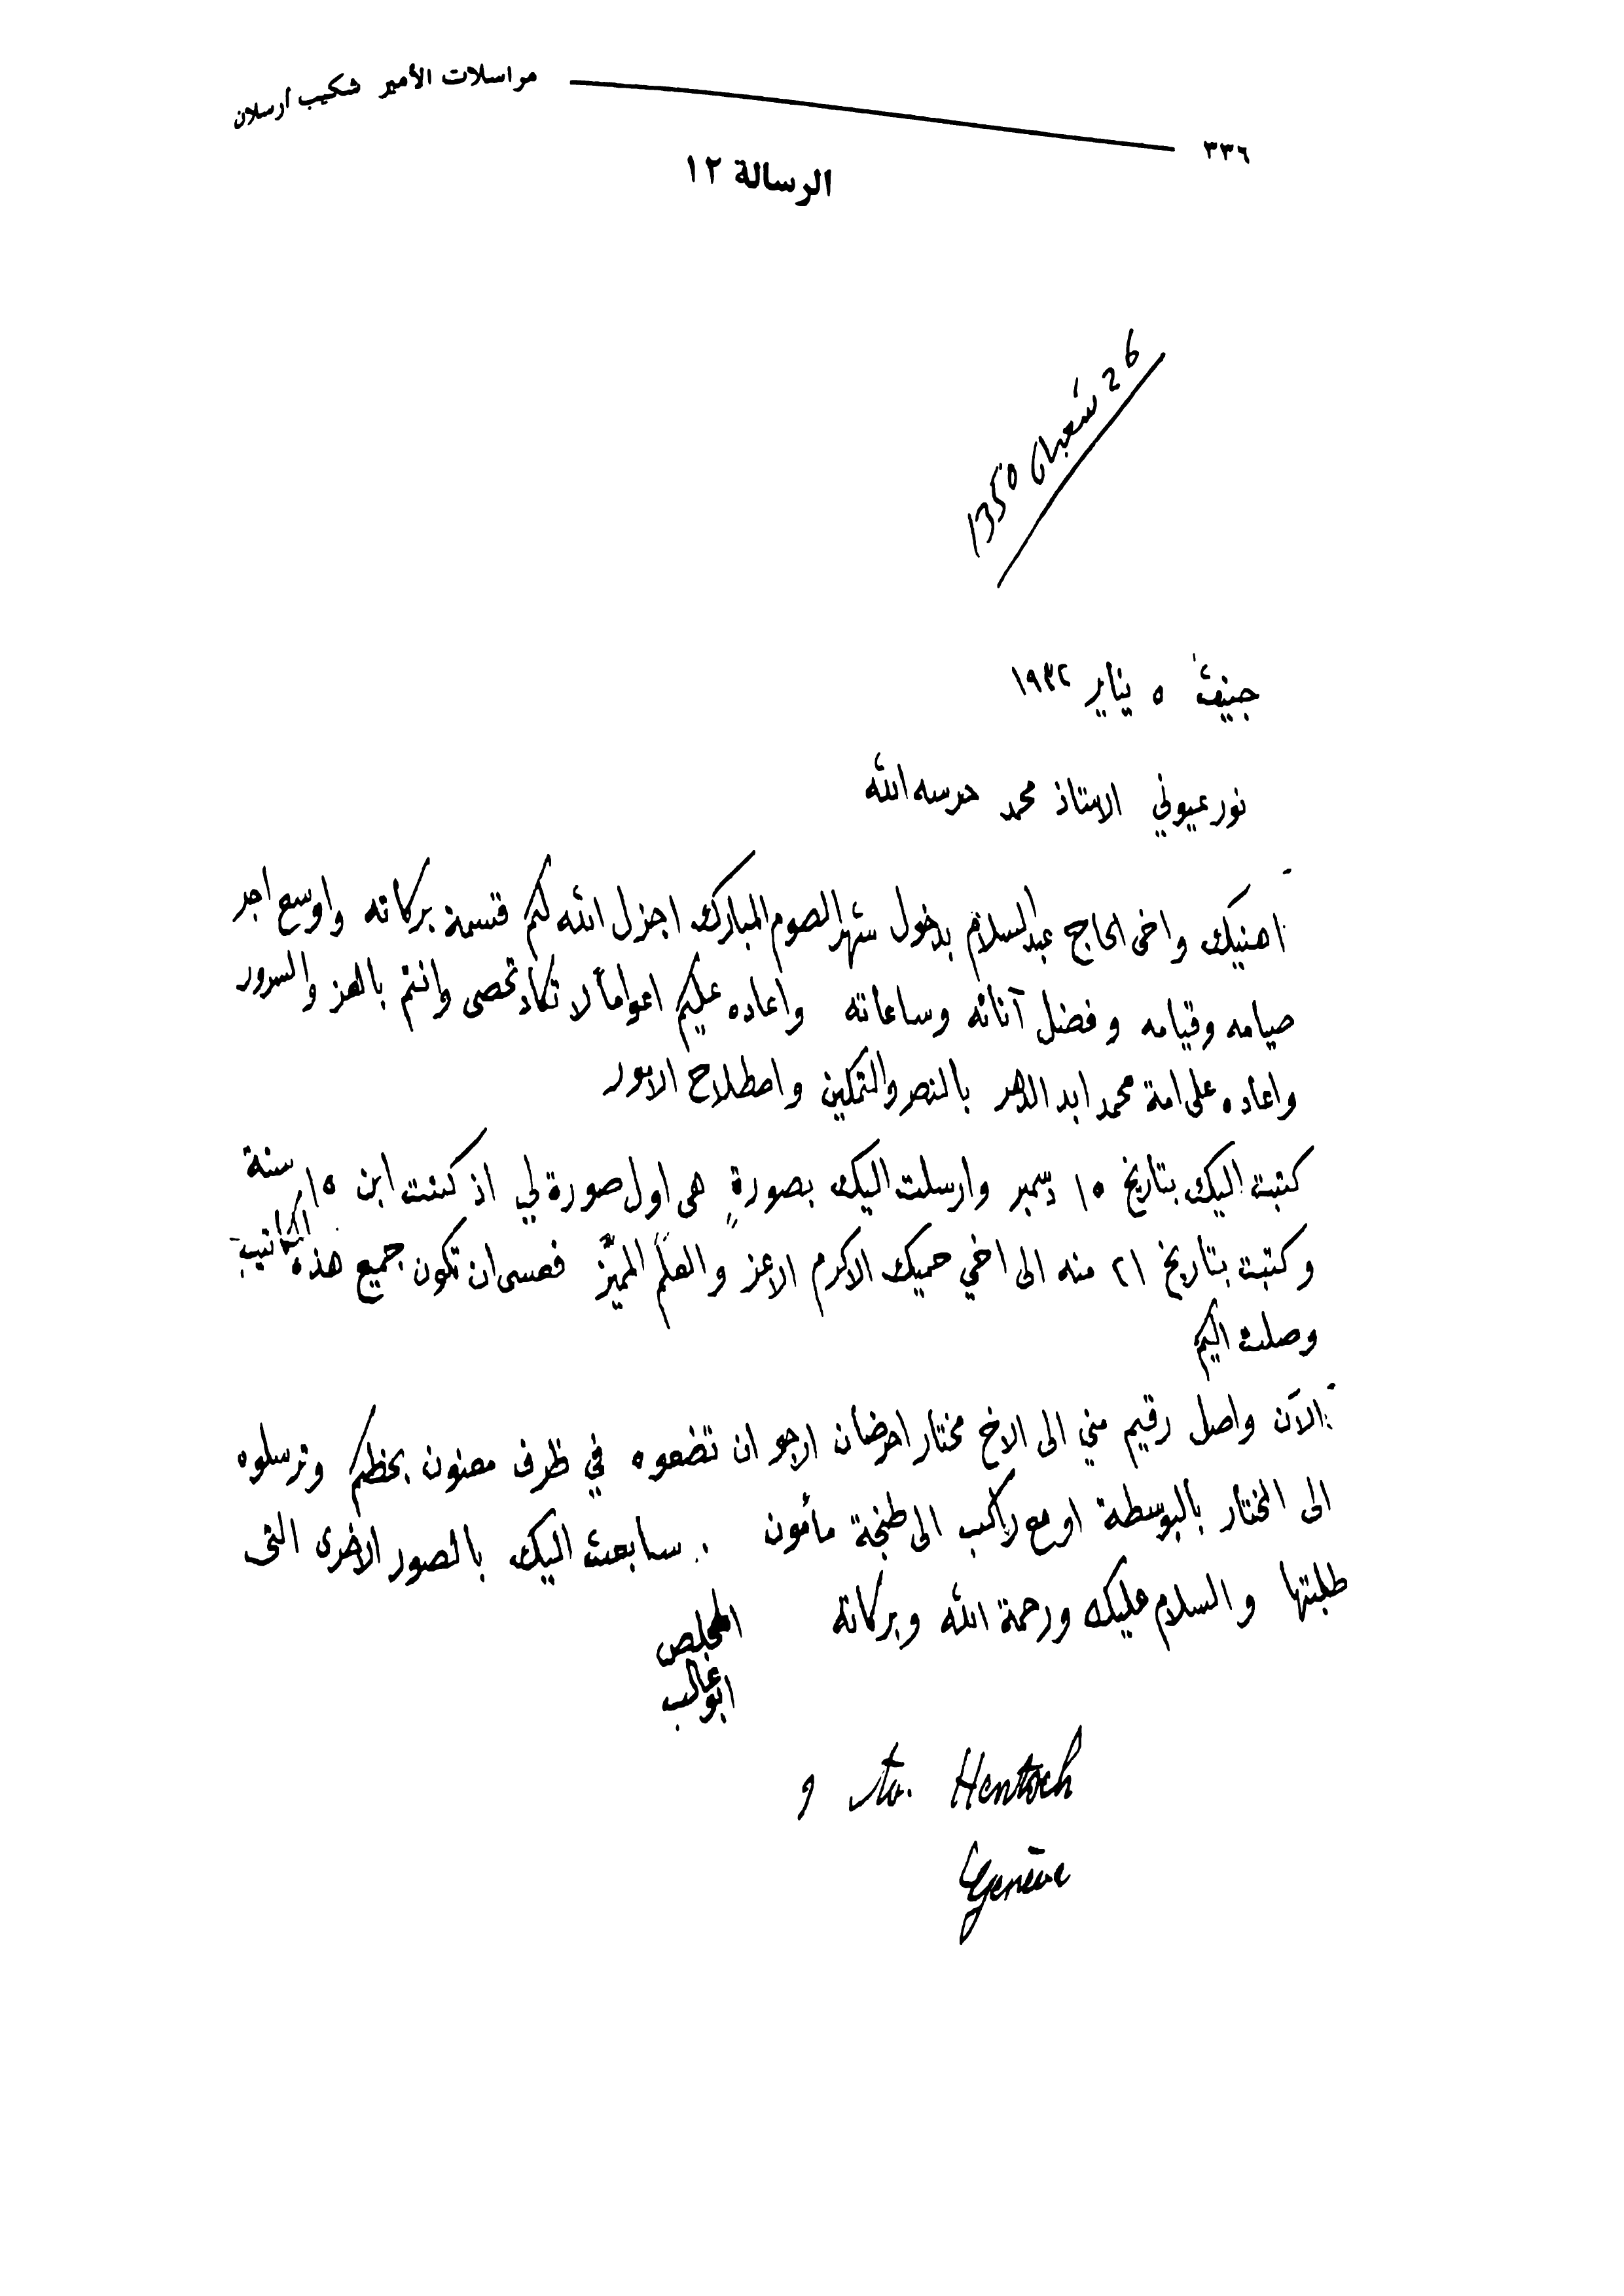 ٣٣٦ مراسلات الأمير شكيب أرسلان
الرسالة ١٢
26 شعبان 1350
جنيف ٥ يناير ١٩٣٢
نور عيوني الاستاذ محمد حرسه الله
اهنيك واخي الحاج عبد السلام بدخول شهر الصوم المبارك اجزل الله لكم قسمة بركاته واوسع اجر
صيامه وقيامه وفضل آنائه وساعاته واعاده عليكم اعواماً لا تكاد تحصى وانتم بالعز والسرور
واعاده على امة محمد ابد الدهر بالنصر والتمكين واصطلاح الامور
كتبت اليك بتاريخ ١٥ دسمبر وارسلت اليك بصورةٍ هى اول صورة لي اذ كنت ابن ١٥ سنة
وكتبت بتاريخ ٢١ منه الى اخي حميك الاكرم الاعز والعلَم المميَّز فعسى ان تكون جميع هذه المكاتيب
وصلت اليكم
الآن واصل رقيم مني الى الاخ مختار احرضان ارجو ان تضعوه في ظرف معنون بخطكم وترسلوه
الى المختار بالبوسطة او مع راكب الى طنجة مأمون . سابعث اليك بالصور الاخرى التى
طلبتها والسلام عليك ورحمة الله وبركاته المخلص
ابو غالب
Hentsch
Genève